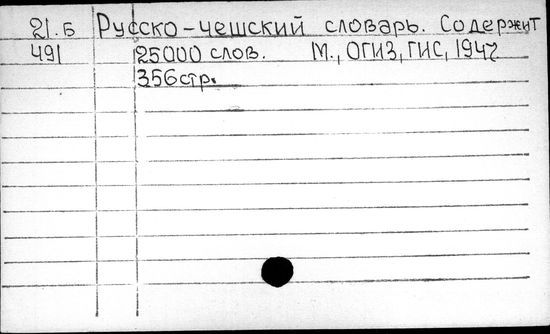 21.Б Русско-чешский словарь. Содержит
491 25000 слов. М., ОГИЗ, ГИС, 1947
356стр.